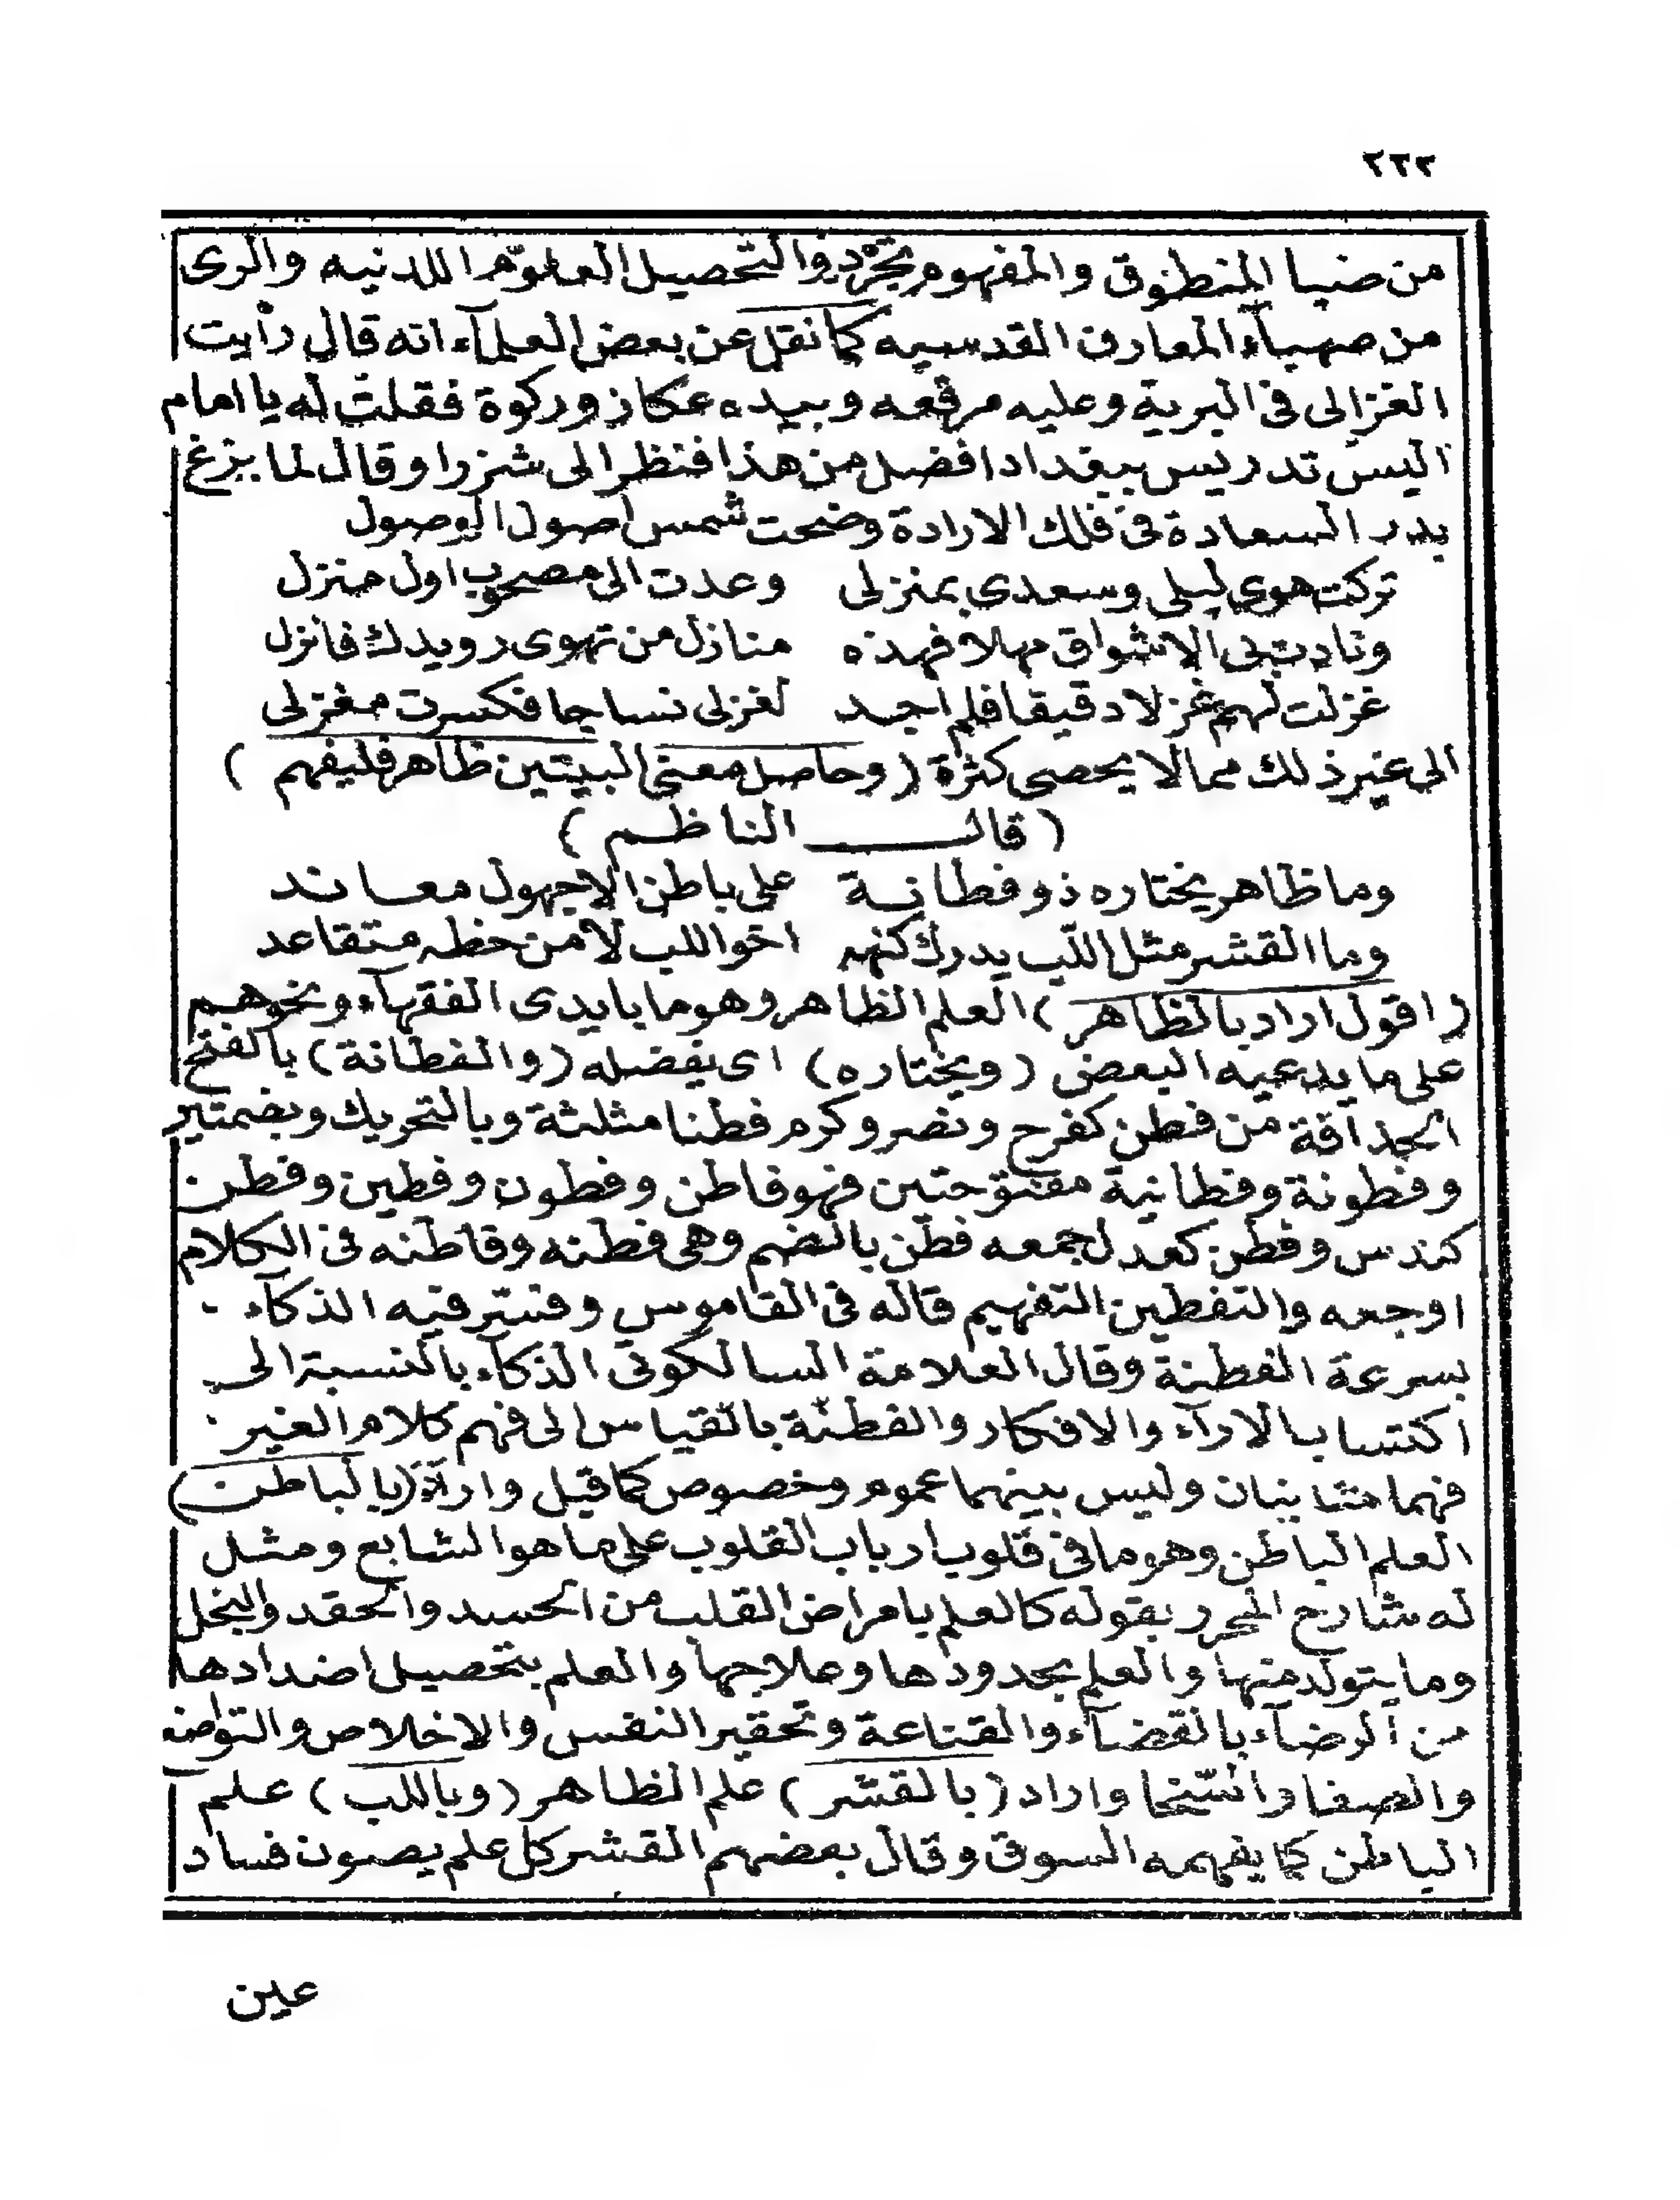 ٢٣٢
من ضيا المنطوق والمفهوم تجردوا لتحصيل العلوم اللدنيه والرى
من صهبآء المعارف القدسيه كما نقل عن بعض العلمآء انه قال رأيت
الغزالى فى البرية وعليه مرقعه وبيده عكاز وركوة فقلت له يا امام
اليس تدريس ببغداد افضل من هذا فنظر الى شزرا وقال لما بزغ
بدر السعادة فى فلك الارادة وضحت شمس اصول الوصول
تركت هوى ليلى وسعدى بمنزلى وعدت الى مصحوب اول منزل
ونادت بى الاشواق مهلا فهذه منازل من تهوى رويدك فانزل
غزلت لهم غزلا دقيقا فلم اجد لغزلى نساجا فكسرت مغزلى
الى غير ذلك مما لا يحصى كثرة (وحاصل معنى البيتين ظاهر فليفهم )
( قال الناظم )
وما ظاهر يختاره ذو فطانة على باطن الا جهول معاند
وما القشر مثل اللب يدرك كنهه اخو اللب لا من حظه متقاعد
(اقول اراد بالظاهر) العلم الظاهر وهو ما بايدى الفقهآء ونحوهم
على ما يدعيه البعض (ويختاره) اى يفضله (والفطانة) بالفتح
الحذاقة من فطن كفرح ونصر وكرم فطنا مثلثة وبالتحريك وبضمتين
وفطونة وفطانية مفتوحتين فهو فاطن وفطون وفطين وفطن
كندس وفطن كعدل جمعه فطن بالضم وهى فطنه وفاطنه فى الكلام
اوجعه والتفطين التفهيم قاله فى القاموس وفسر فيه الذكآء
بسرعة الفطنة وقال العلامة السالكوتى الذكآء بالنسبة الى
اكتساب الارآء والافكار والفطنة بالقياس الى فهم كلام الغير
فهما متباينان وليس بينهما عموم وخصوص كما قيل واراد (بالباطن)
العلم الباطن وهو ما فى قلوب ارباب القلوب على ما هو الشايع ومثل
له شارح المحرر بقوله كالعلم بامراض القلب من الحسد والحقد والبخل
وما يتولد منها والعلم بحدودها وعلاجها والعلم بتحصيل اضدادها
من الرضآء بالقضآء والقناعة وتحقير النفس والاخلاص والتواضع
والصفا والسخا واراد (بالقشر) علم الظاهر (وباللب) علم
الباطن كما يفهمه السوق وقال بعضهم القشر كل علم يصون فساد
عين